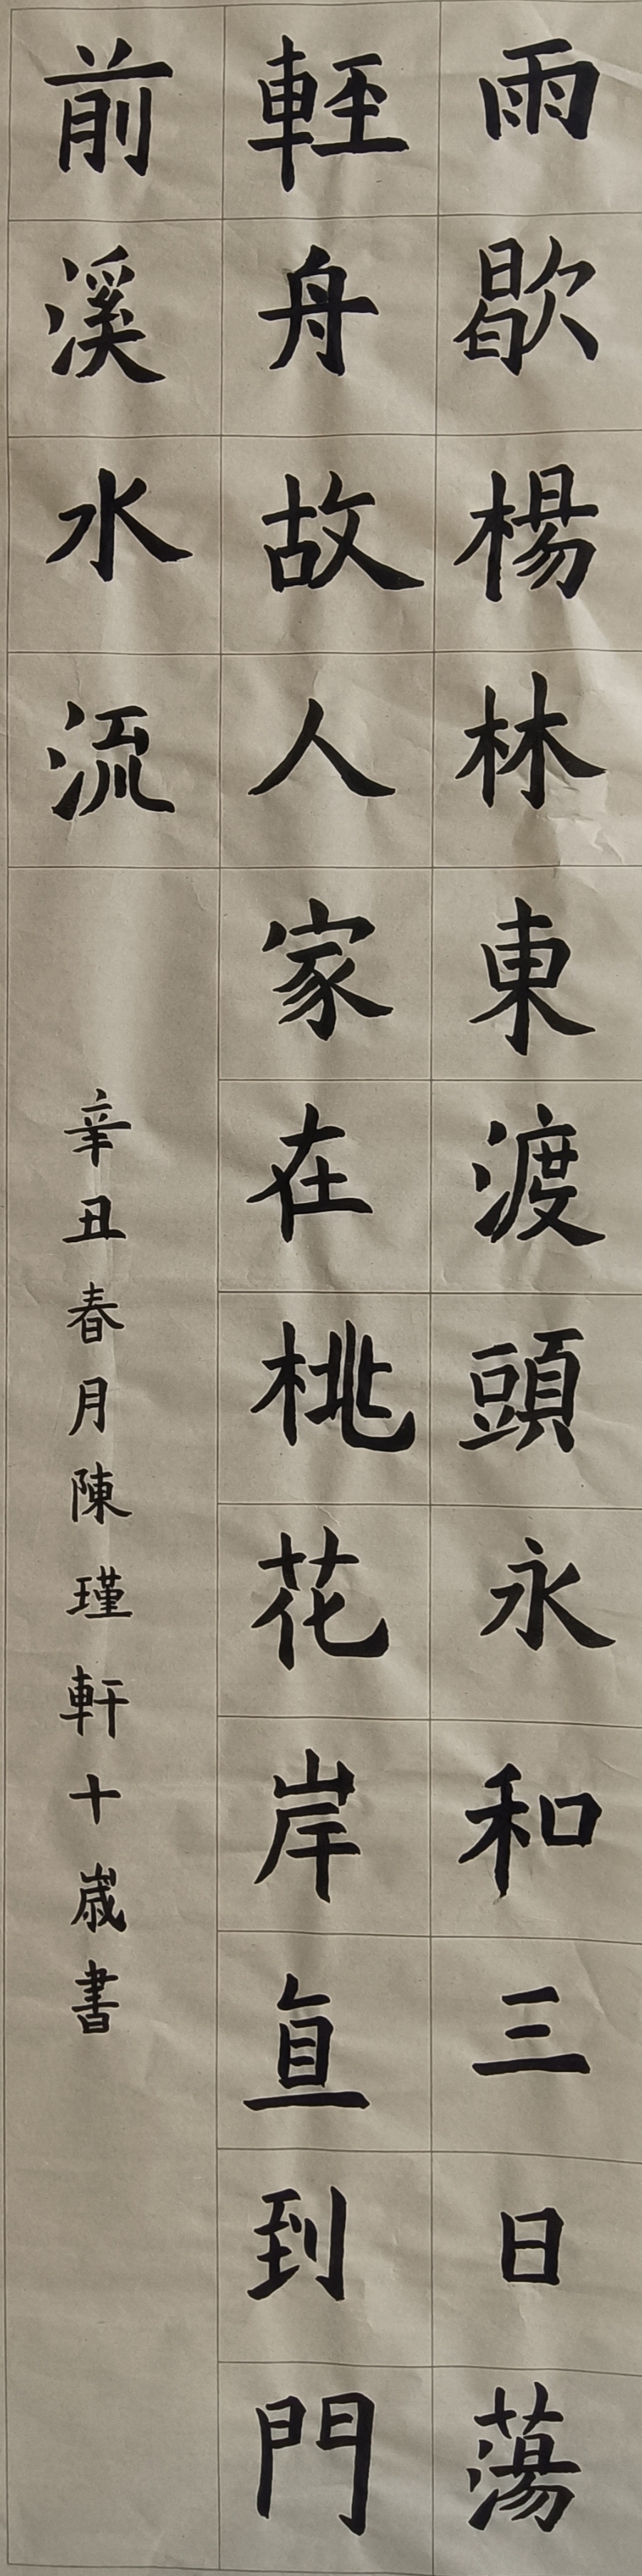 雨歇楊林東渡頭永和三日蕩
輕舟故人家在桃花岸直到門
前溪水流
辛丑春月陳瑾軒十歲書